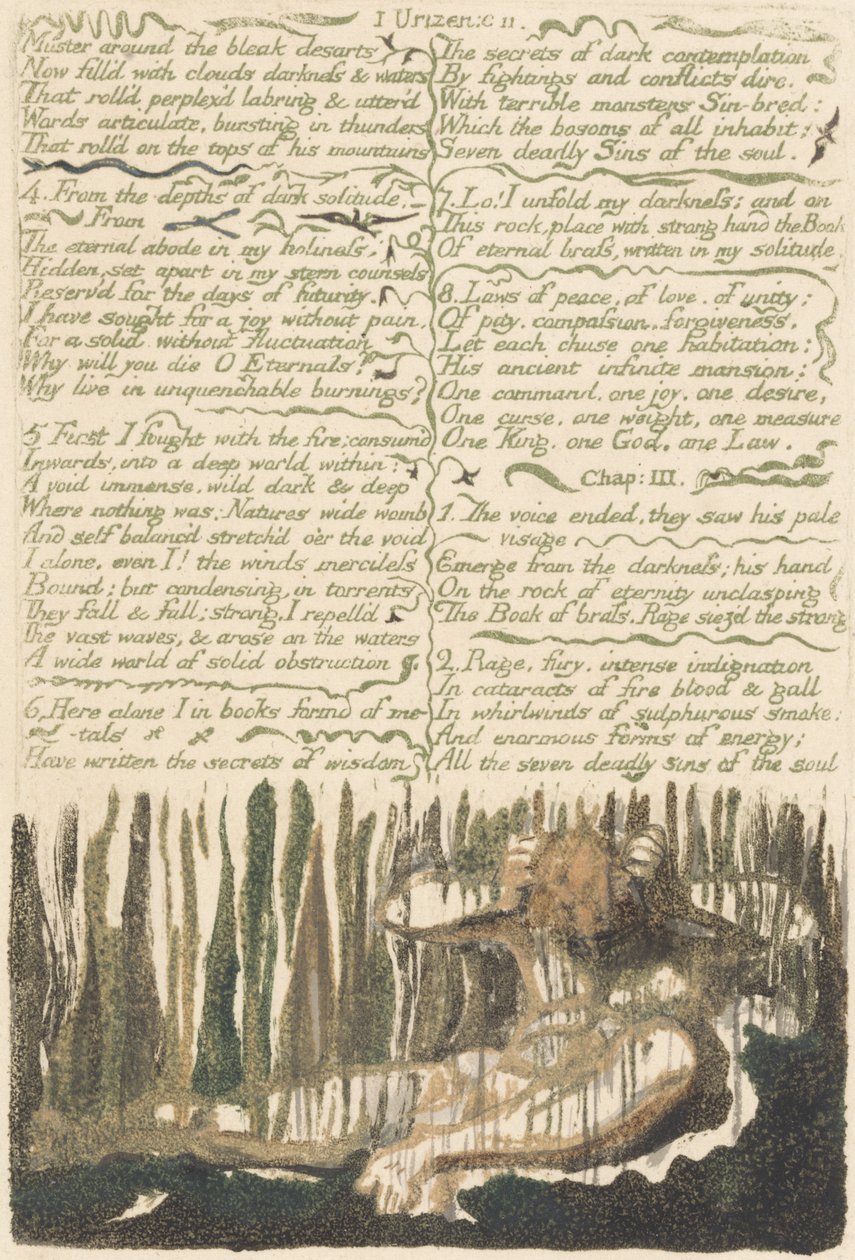 I Urizen: C II.
Muster around the bleak desarts
Now fill'd with clouds darkness & waters
That roll'd, perplex'd labring & utter'd
Words articulate, bursting in thunders
That roll'd on the tops of his mountains
4. From the depths of dark solitude.
From
The eternal abode in my holiness,
Hidden, set apart in my stern counsels
Reserv'd for the days of futurity.
I have sought for a joy without pain,
For a solid without fluctuation
Why will you die O Eternals?
Why live in unquenchable burnings?
5 First I fought with the fire; consum'd
Inwards, into a deep world within:
A void immense, wild dark & deep
Where nothing was; Natures wide womb
And self balanc'd stretch'd o'er the void
I alone, even I! the winds merciless
Bound; but condensing, in torrents
They fall & fall; strong, I repell'd
The vast waves, & arose on the waters
A wide world of solid obstruction
6. Here alone I in books form'd of me-
-tals
Have written the secrets of wisdom
The secrets of dark contemplation
By fightings and conflicts dire.
With terrible monsters Sin-bred:
Which the bosoms of all inhabit;
Seven deadly Sins of the soul.
7. Lo! I unfold my darkness; and on
This rock, place with strong hand the Book
Of eternal brass, written in my solitude.
8. Laws of peace, of love, of unity;
Of pity, compassion, forgiveness.
Let each chuse one habitation:
His ancient infinite mansion:
One command, one joy, one desire,
One curse, one weight, one measure
One King, one God, one Law.
Chap: III.
1. The voice ended, they saw his pale
visage
Emerge from the darkness; his hand
On the rock of eternity unclasping
The Book of brass. Rage siez'd the strong
2. Rage, fury, intense indignation
In cataracts of fire blood & gall
In whirlwinds of sulphurous smoke:
And enormous forms of energy;
All the seven deadly sins of the soul